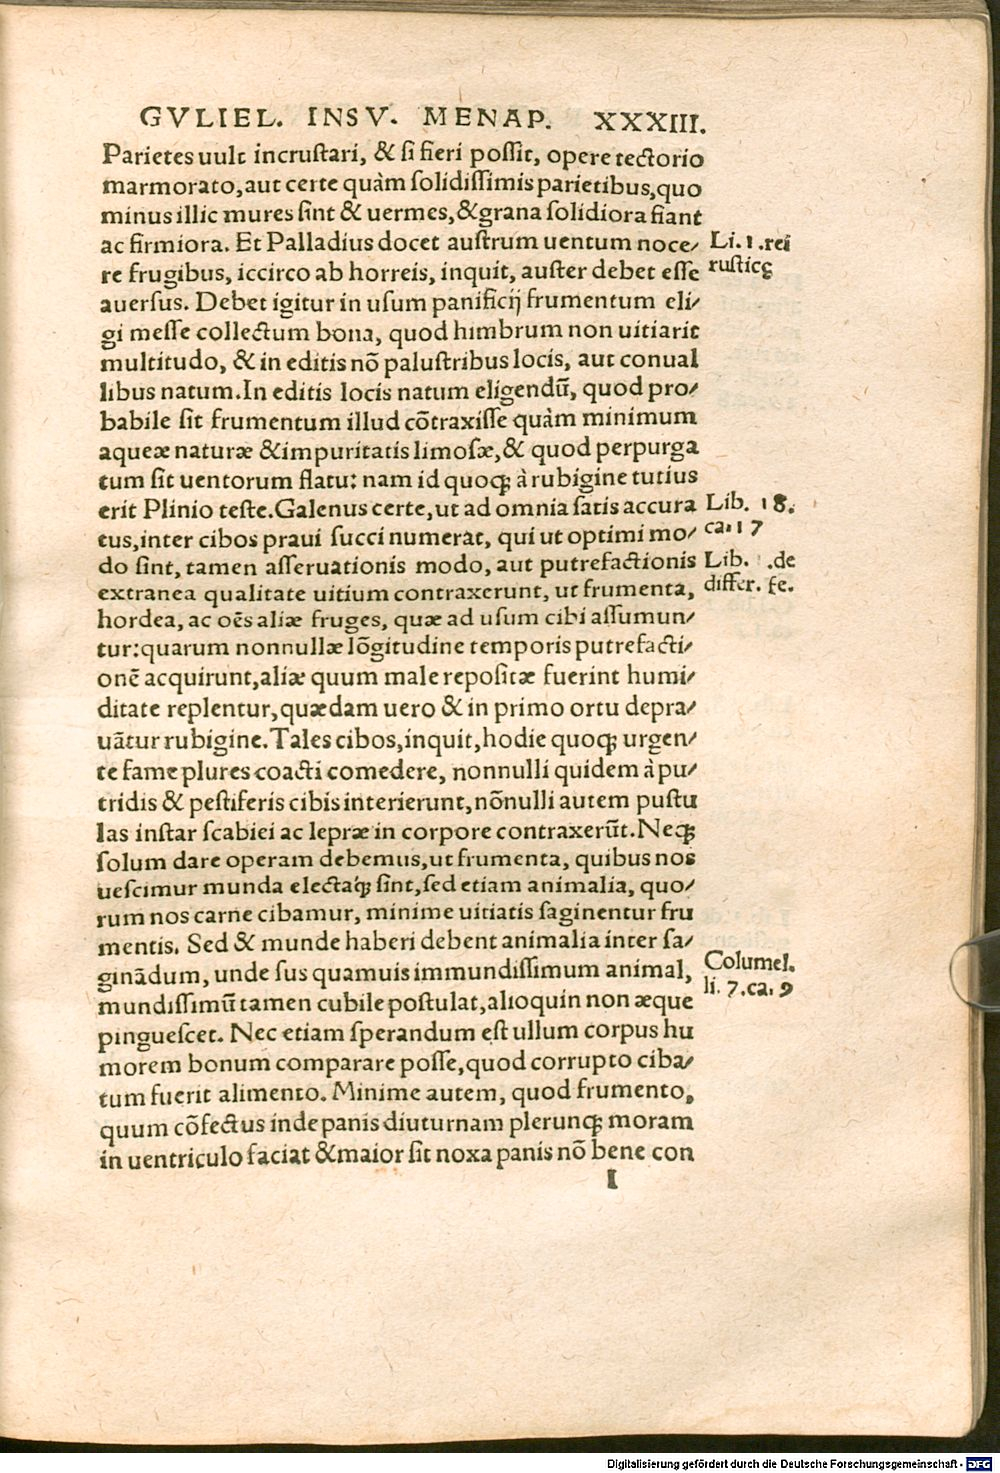 GVLIEL. INSV. MENAP. XXXIII.
Parietes uult incrustari, & si fieri possit, opere tectorio
marmorato, aut certe quàm solidissimis parietibus, quo
minus illic mures sint & uermes, & grana solidiora fiant
ac firmiora. Et Palladius docet austrum uentum noce/
re frugibus, iccirco ab horreis, inquit, auster debet esse
auersus. Debet igitur in usum panificij frumentum eli/
gi messe collectum bona, quod himbrum non uitiarit
multitudo, & in editis nõ palustribus locis, aut conual
libus natum. In editis locis natum eligendũ, quod pro/
babile sit frumentum illud cõtraxisse quàm minimum
aqueæ naturæ & impuritatis limosæ, & quod perpurga
tum sit uentorum flatu: nam id quoq; à rubigine tutius
erit Plinio teste. Galenus certe, ut ad omnia satis accura
tus, inter cibos praui succi numerat, qui ut optimi mo/
do sint, tamen asseruationis modo, aut putrefactionis
extranea qualitate uitium contraxerunt, ut frumenta,
hordea, ac oẽs aliæ fruges, quæ ad usum cibi assumun/
tur: quarum nonnullæ lõgitudine temporis putrefacti/
onẽ acquirunt, aliæ quum male repositæ fuerint humi/
ditate replentur, quædam uero & in primo ortu depra/
uãtur rubigine. Tales cibos, inquit, hodie quoq; urgen/
te fame plures coacti comedere, nonnulli quidem à pu/
tridis & pestiferis cibis interierunt, nõnulli autem pustu
las instar scabiei ac lepræ in corpore contraxerũt. Neq;
solum dare operam debemus, ut frumenta, quibus nos
uescimur munda electaq́; sint, sed etiam animalia, quo/
rum nos carne cibamur, minime uitiatis saginentur fru
mentis. Sed & munde haberi debent animalia inter sa/
ginãdum, unde sus quamuis immundissimum animal,
mundissimũ tamen cubile postulat, alioquin non æque
pinguescet. Nec etiam sperandum est ullum corpus hu
morem bonum comparare posse, quod corrupto ciba/
tum fuerit alimento. Minime autem, quod frumento,
quum cõfectus inde panis diuturnam plerunq; moram
in uentriculo faciat & maior sit noxa panis nõ bene con
I
Li. 1. rei
rusticę
Lib. 18.
ca. 17
Lib. .de
differ. fe.
Columel.
li. 7. ca. 9
Digitalisierung gefördert durch die Deutsche Forschungsgemeinschaft - DFG